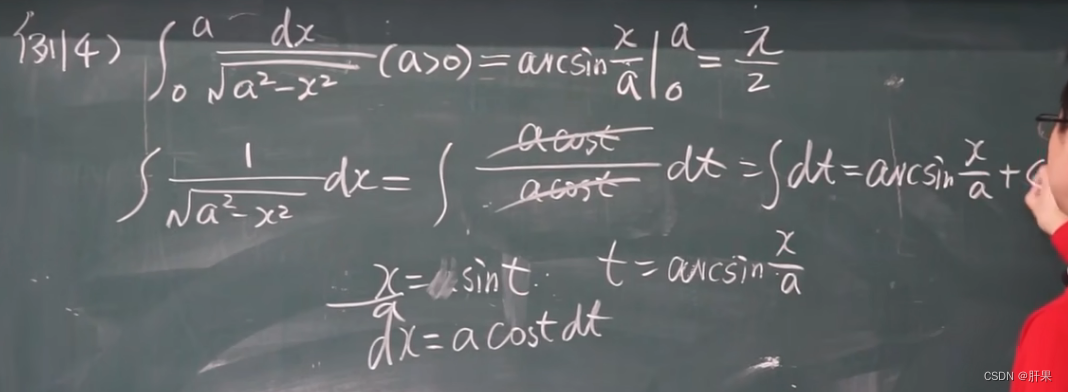 例4) ∫₀ᵃ dx/√(a²-x²) (a>0) = arcsin x/a |₀ᵃ = π/2
∫ 1/√(a²-x²) dx = ∫ acost/acost dt = ∫dt = arcsin x/a +
x/a = sint. t = arcsin x/a
dx = a cost dt
CSDN @肝果